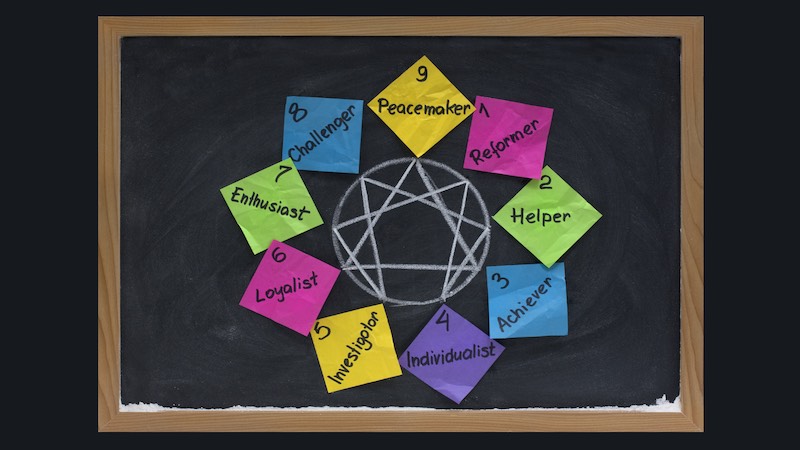 9
Peacemaker
1
Reformer
2
Helper
3
Achiever
4
Individualist
5
Investigator
6
Loyalist
7
Enthusiast
8
Challenger